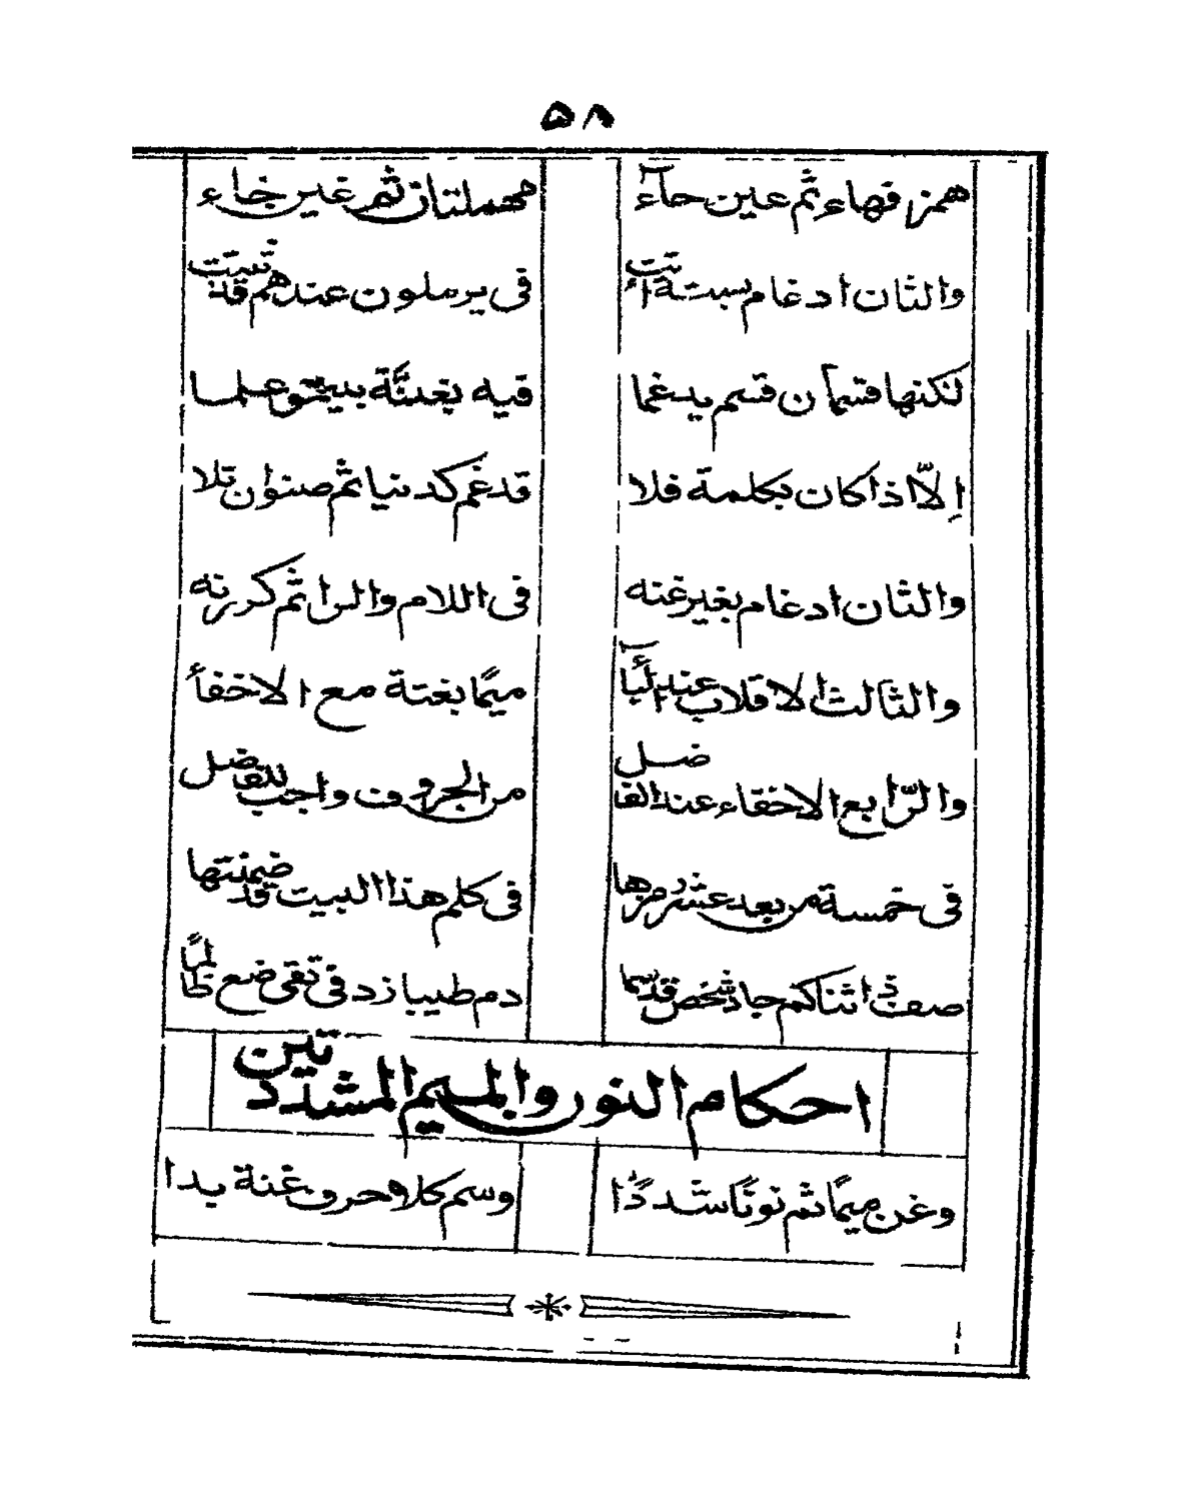 ۵۸
همز فهاء ثم عين حاء مهملتان ثم غين خاء
والثان ادغام بستة اتت فى يرملون عندهم قد ثبتت
لكنها قسمان قسم يدغما فيه بغنة بينمو علما
اِلّا اذا كان بكلمة فلا تدغم كدنيا ثم صنوان تلا
والثان ادغام بغير غنه فى اللام والرا ثم كررنه
والثالث الاقلاب عند البآ ميمًا بغنة مع الاخفأ
والرّابع الاخفاء عند الفاضل من الحروف واجب للفاضل
فى خمسة من بعد عشر رمزها فى كلم هذا البيت قد ضمنتها
صف ذا ثنا كم جاد شخص قد سما دم طيبا زد فى تقى ضع ظالمًا
احكام النون والميم المشددتين
وغن ميمًا ثم نونًا شددًا وسم كلا حرف غنة بدا